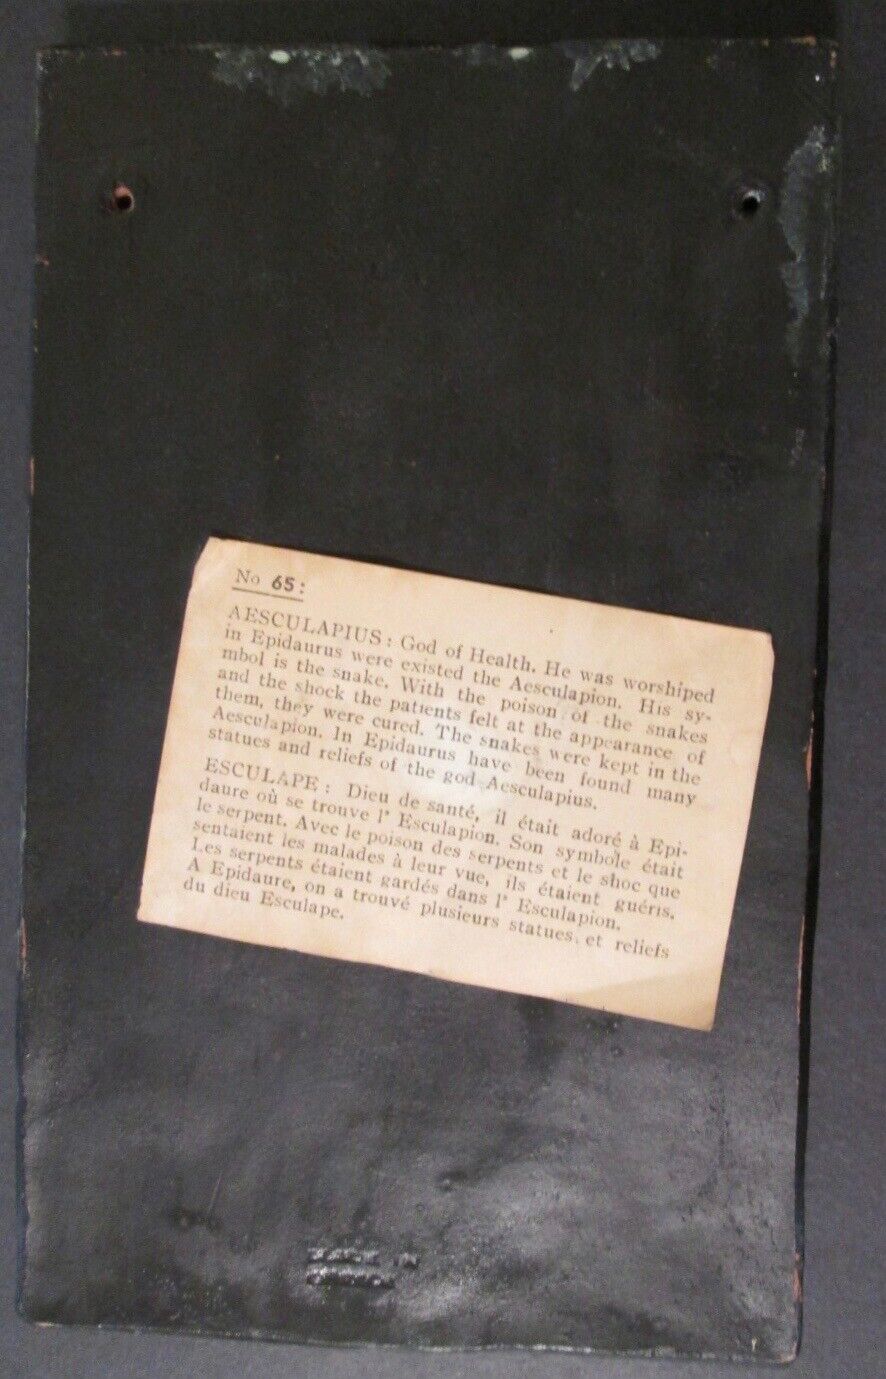 No 65:
AESCULAPIUS: God of Health. He was worshiped
in Epidaurus were existed the Aesculapion. His sy-
mbol is the snake. With the poison of the snakes
and the shock the patients felt at the appearance of
them, they were cured. The snakes were kept in the
Aesculapion. In Epidaurus have been found many
statues and reliefs of the god Aesculapius.
ESCULAPE: Dieu de santé, il était adoré à Epi-
daure où se trouve l' Esculapion. Son symbole était
le serpent. Avec le poison des serpents et le shoc que
sentaient les malades à leur vue, ils étaient guéris.
Les serpents étaient gardés dans l' Esculapion.
A Epidaure, on a trouvé plusieurs statues, et reliefs
du dieu Esculape.